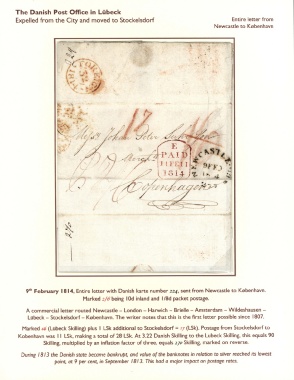 The Danish Post Office in Lübeck
Expelled from the City and moved to Stockelsdorf
Entire letter from
Newcastle to København
E
PAID
11 FE 11
1814
NEWCASTLE
Copenhagen
9th February 1814, Entire letter with Danish karte number 224, sent from Newcastle to København.
Marked 2/6 being 10d inland and 1/8d packet postage.
A commercial letter routed Newcastle – London – Harwich – Brielle – Amsterdam – Wildeshausen –
Lübeck – Stockelsdorf – København. The writer notes that this is the first letter possible since 1807.
Postage from Stockelsdorf to
København was 11 LSk, making a total of 28 LSk. At 3.22 Danish Skilling to the Lübeck Skilling, this equals 90
Skilling, multiplied by an inflation factor of three, equals Skilling, marked on reverse.
During 1813 the Danish state became bankrupt, and value of the banknotes in relation to silver reached its lowest
point, at 9 per cent, in September 1813. This had a major impact on postage rates.